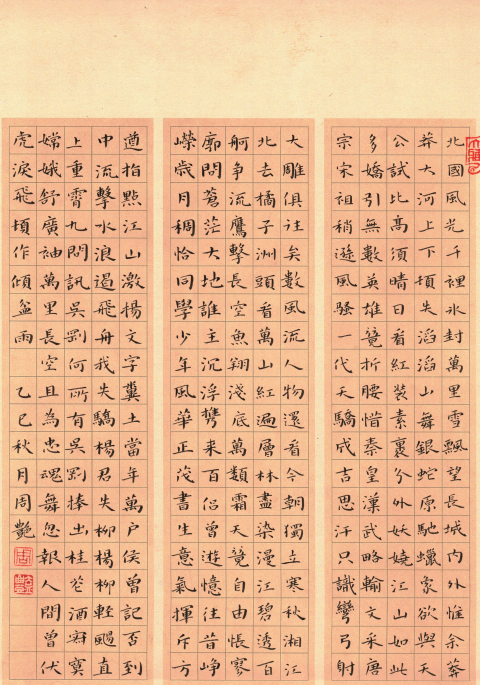 北國風光千裡冰封萬里雪飄望長城內外惟余莽
莽大河上下頓失滔滔山舞銀蛇原馳蠟象欲與天
公試比高須晴日看紅裝素裹分外妖嬈江山如此
多嬌引無數英雄競折腰惜秦皇漢武略輸文采唐
宗宋祖稍遜風騷一代天驕成吉思汗只識彎弓射
大雕俱往矣數風流人物還看今朝獨立寒秋湘江
北去橘子洲頭看萬山紅遍層林盡染漫江碧透百
舸爭流鷹擊長空魚翔淺底萬類霜天競自由悵寥
廓問蒼茫大地誰主沉浮攜來百侶曾遊憶往昔崢
嶸歲月稠恰同學少年風華正茂書生意氣揮斥方
遒指點江山激揚文字糞土當年萬戶侯曾記否到
中流擊水浪遏飛舟我失驕楊君失柳楊柳輕颺直
上重霄九問訊吳剛何所有吳剛捧出桂花酒寂寞
嫦娥舒廣袖萬里長空且為忠魂舞忽報人間曾伏
虎淚飛頓作傾盆雨 乙巳秋月周艷